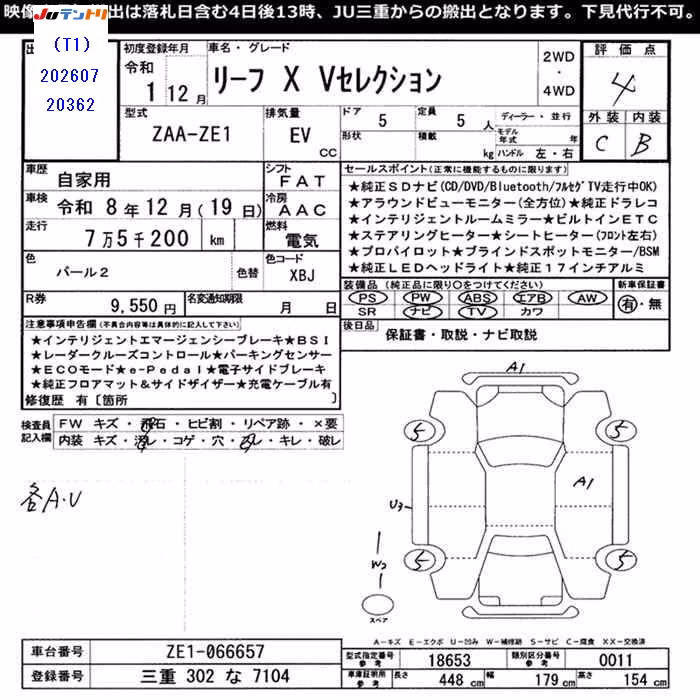 映像 出は落札日含む4日後13時、JU三重からの搬出となります。下見代行不可。
JUテントリ
(T1)
202607
20362
出
初度登録年月
令和
1 12月
車名・グレード
リーフ X Vセレクション
2WD
・
4WD
評価点
4
外装 内装
C B
型式
ZAA-ZE1
排気量
EV
CC
ドア
5
形状
定員
5 人
積載
kg
ディーラー・並行
モデル年式 年
ハンドル 左・右
車歴
自家用
シフト
FAT
車検
令和 8年12月(19日)
冷房
AAC
走行
7万5千200 km
燃料
電気
色
パール2
色替
色コード
XBJ
R券
9,550円
名変通知期限
月 日
セールスポイント(正常に機能するものに限ります)
★純正SDナビ(CD/DVD/Bluetooth/フルセグTV走行中OK)
★アラウンドビューモニター(全方位)★純正ドラレコ
★インテリジェントルームミラー★ビルトインETC
★ステアリングヒーター★シートヒーター(フロント左右)
★プロパイロット★ブラインドスポットモニター/BSM
★純正LEDヘッドライト★純正17インチアルミ
装備品(純正品に限り○をつけてください)
PS PW ABS エアB AW
SR ナビ TV カワ
新車保証書
有・無
後日品
保証書・取説・ナビ取説
注意事項申告欄(不具合内容等は具体的に記入して下さい)
★インテリジェントエマージェンシーブレーキ★BSI
★レーダークルーズコントロール★パーキングセンサー
★ECOモード★e-Pedal★電子サイドブレーキ
★純正フロアマット&サイドザイザー★充電ケーブル有
修復歴 有〔箇所 〕
検査員記入欄
FW キズ・飛石・ヒビ割・リペア跡・×要
内装 キズ・汚レ・コゲ・穴・スレ・キレ・破レ
各A・U
A1
5
5
A1
U3
5
5
W2
スペア
A-キズ E-エクボ U-凹み W-補修跡 S-サビ C-腐食 XX-交換済
車台番号
ZE1-066657
登録番号
三重 302 な 7104
型式指定番号
参考
18653
類別区分番号
参考
0011
車庫証明用
参考
長さ 448 cm 幅 179 cm 高さ 154 cm